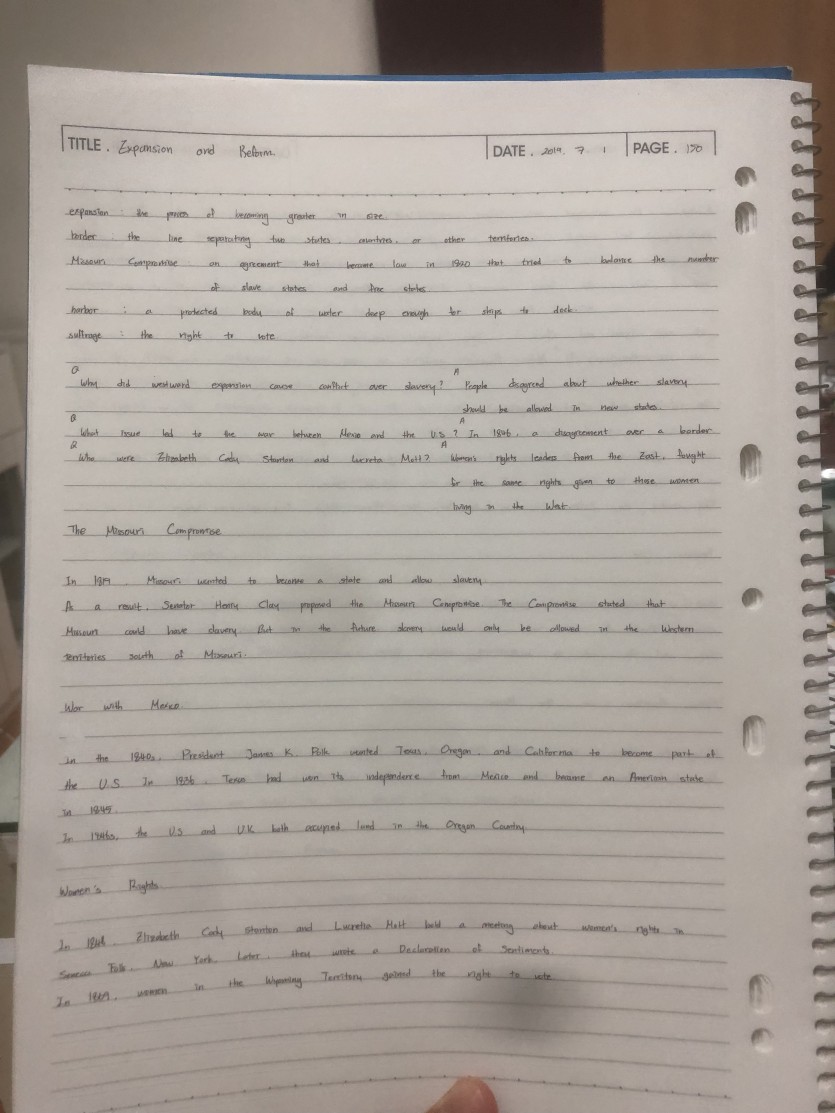 TITLE. Expansion and Reform. DATE. 2019. 7. 1 PAGE. 150
expansion : the process of becoming greater in size
border : the line separating two states, countries, or other territories.
Missouri Compromise an agreement that became law in 1820 that tried to balance the number
of slave states and free states
harbor : a protected body of water deep enough for ships to dock
suffrage : the right to vote
Q A
Why did westward expansion cause conflict over slavery? People disagreed about whether slavery
should be allowed in new states.
Q A
What issue led to the war between Mexico and the U.S? In 1846, a disagreement over a border
Q A
Who were Elizabeth Cady Stanton and Lucretia Mott? Women's rights leaders from the East, fought
for the same rights given to those women
living in the West
The Missouri Compromise
In 1819 Missouri wanted to become a state and allow slavery.
As a result, Senator Henry Clay proposed the Missouri Compromise. The Compromise stated that
Missouri could have slavery But in the future slavery would only be allowed in the Western
territories south of Missouri.
War with Mexico
in the 1840s, President James K. Polk wanted Texas, Oregon, and California to become part of
the U.S In 1836, Texas had won its independence from Mexico and became an American state
in 1845.
In 1840s, the U.S and U.K both occupied land in the Oregon Country.
Women's Rights
In 1848, Elizabeth Cady Stanton and Lucretia Mott held a meeting about women's rights in
Seneca Falls, New York. Later, they wrote a Declaration of Sentiments.
In 1869, women in the Wyoming Territory gained the right to vote